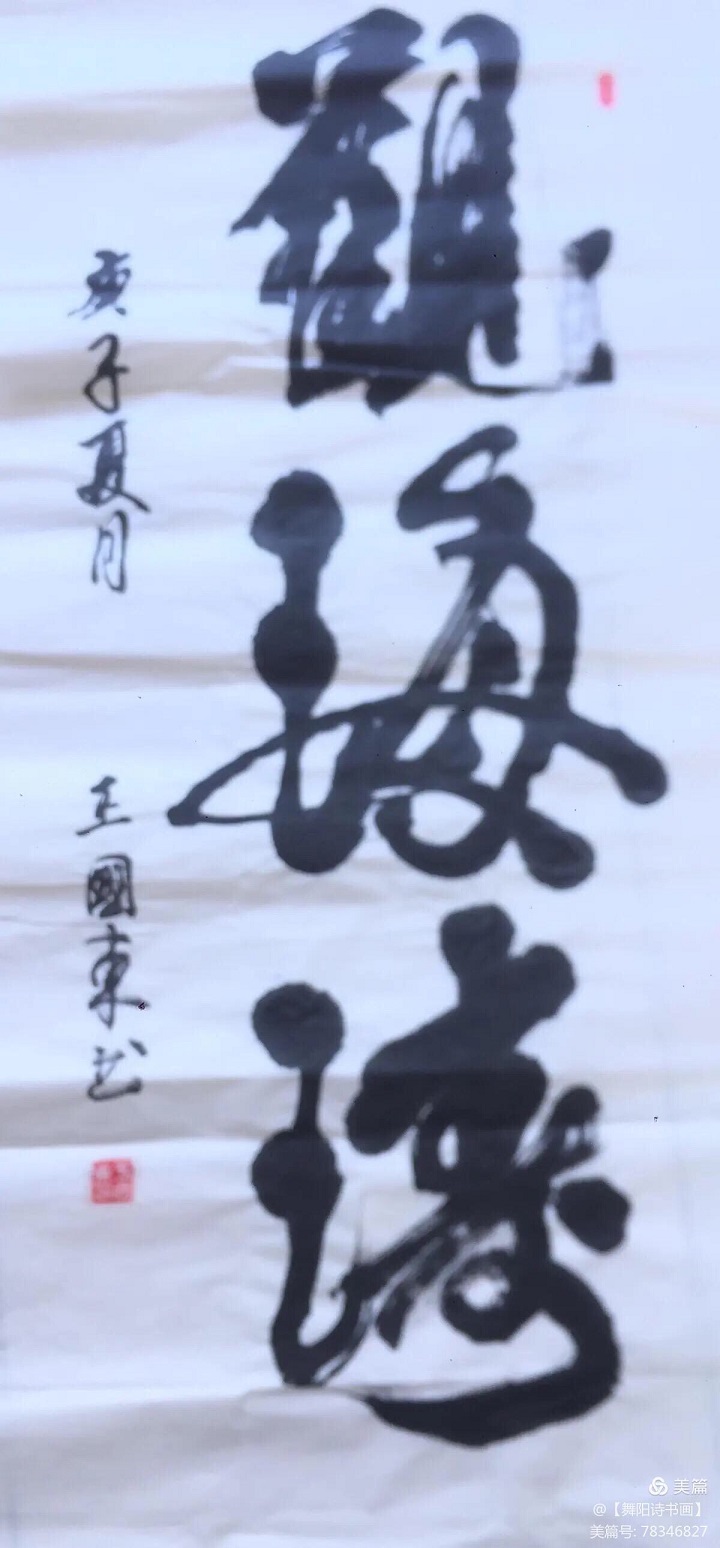 觀海濤
庚子夏月 王國東书
美篇
@【舞阳诗书画】
美篇号: 78346827